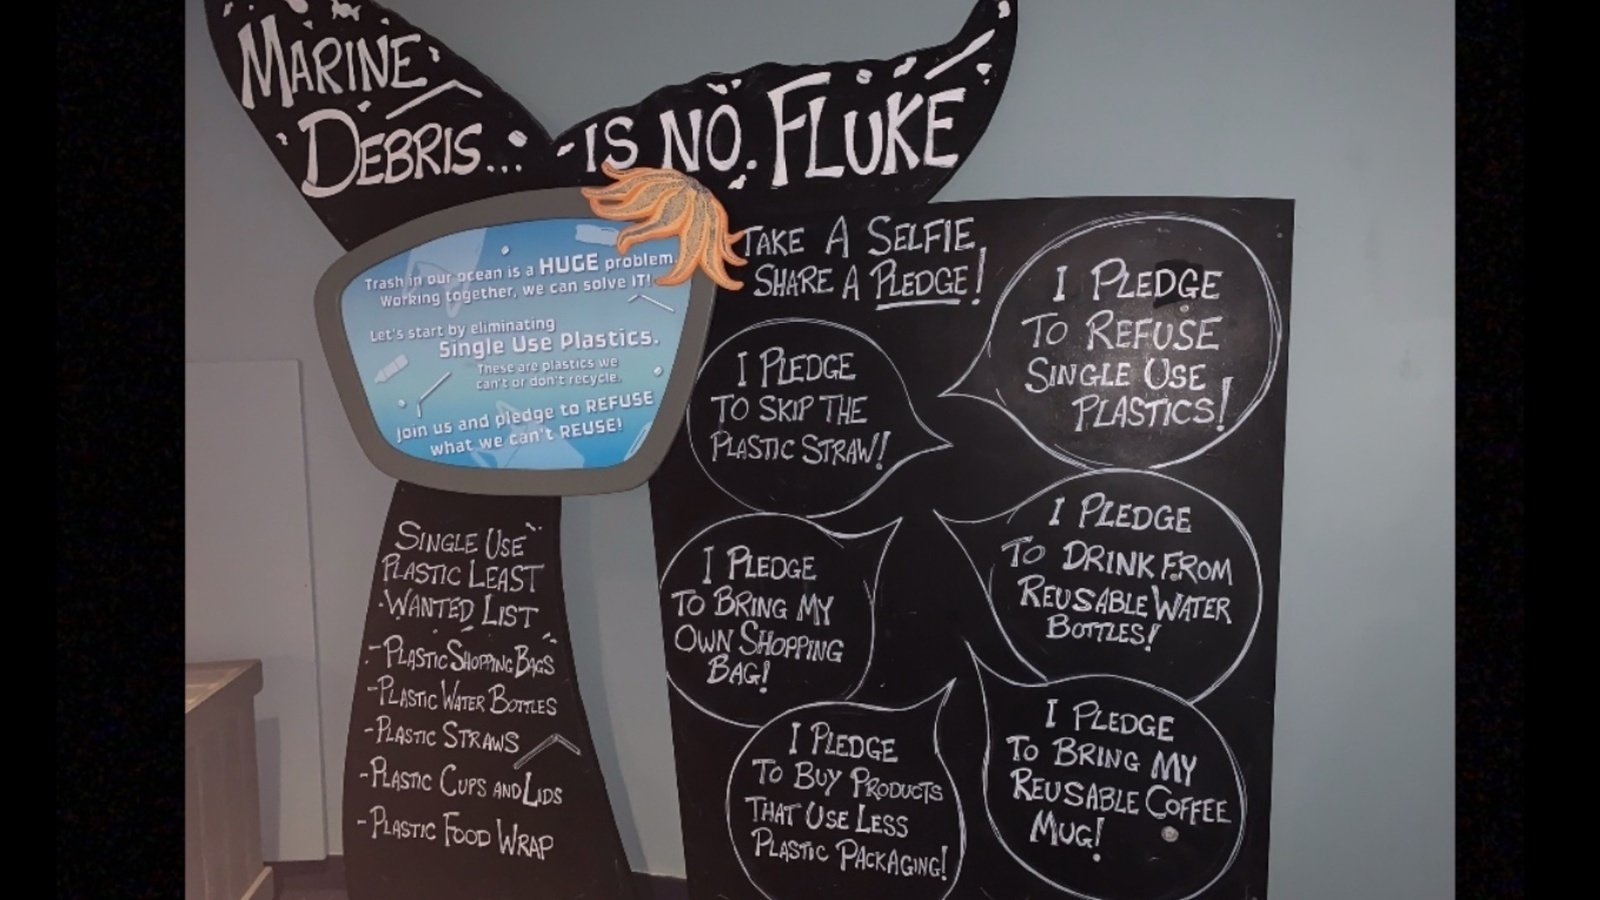 MARINE
DEBRIS... IS NO FLUKE
Trash in our ocean is a HUGE problem.
Working together, we can solve IT!
Let's start by eliminating
Single Use Plastics.
These are plastics we
can't or don't recycle.
Join us and pledge to REFUSE
what we can't REUSE!
SINGLE USE
PLASTIC LEAST
WANTED LIST
- PLASTIC SHOPPING BAGS
- PLASTIC WATER BOTTLES
- PLASTIC STRAWS
- PLASTIC CUPS AND LIDS
- PLASTIC FOOD WRAP
TAKE A SELFIE,
SHARE A PLEDGE!
I PLEDGE
TO SKIP THE
PLASTIC STRAW!
I PLEDGE
TO REFUSE
SINGLE USE
PLASTICS!
I PLEDGE
TO BRING MY
OWN SHOPPING
BAG!
I PLEDGE
TO DRINK FROM
REUSABLE WATER
BOTTLES!
I PLEDGE
TO BUY PRODUCTS
THAT USE LESS
PLASTIC PACKAGING!
I PLEDGE
TO BRING MY
REUSABLE COFFEE
MUG!